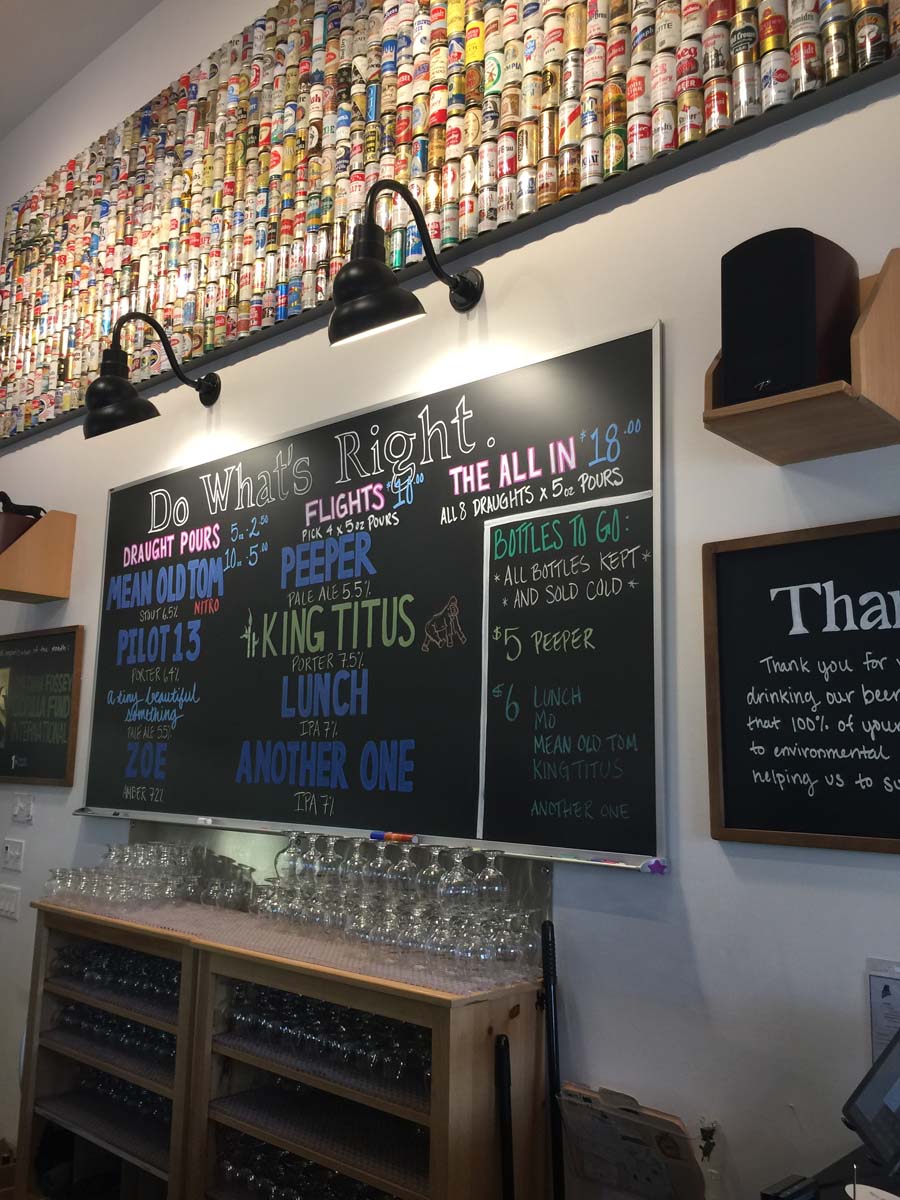 Do What's Right.
DRAUGHT POURS
5oz - 2.50
10oz - 5.00
FLIGHTS $10.00
PICK 4 x 5oz POURS
THE ALL IN $18.00
ALL 8 DRAUGHTS x 5oz POURS
MEAN OLD TOM
STOUT 6.5% NITRO
PILOT 13
PORTER 6.4%
A tiny beautiful
something
PALE ALE 5.5%
ZOE
AMBER 7.2%
PEEPER
PALE ALE 5.5%
KING TITUS
PORTER 7.5%
LUNCH
IPA 7%
ANOTHER ONE
IPA 7%
BOTTLES TO GO:
* ALL BOTTLES KEPT *
* AND SOLD COLD *
$5 PEEPER
$6 LUNCH
MO
MEAN OLD TOM
KING TITUS
ANOTHER ONE
Than
Thank you for
drinking our beer
that 100% of your
to environmental
helping us to su
FOSSEY
GORILLA FUND
INTERNATIONAL